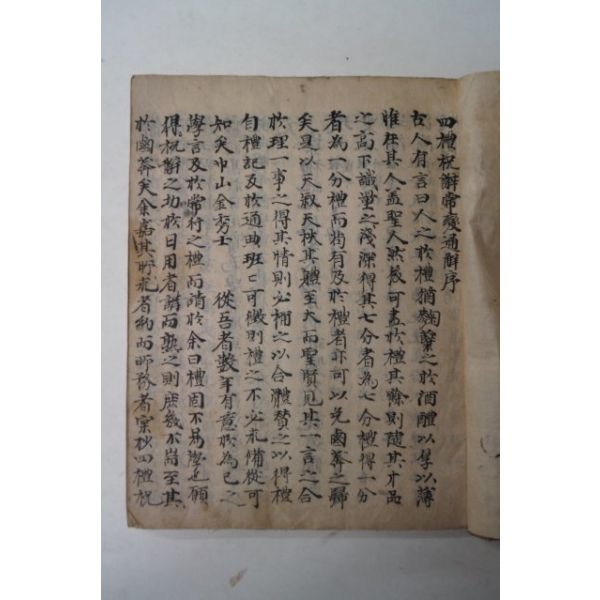 四禮祝辭常變通解序
古人有言曰人之於禮猶麴糱之於酒醴以厚以薄
惟在其人盖聖人然後可盡於禮其餘則隨其才品
之高下識量之淺深得其七分者為七分禮得一分
者為一分禮而苟有及於禮者亦可以免鹵莽之歸
矣是以天叙天秩其體至大而聖賢見其一言之合
於理一事之得其情則必稱之以合禮贊之以得禮
自禮記及於通典班〻可徵則禮之不必求備從可
知矣中山金秀士 從吾者數年有意於為己之
學言及於常行之禮而請於余曰禮固不易學也願
得祝辭之切於日用者講而熟之則庶幾不歸至其
於鹵莽矣余嘉其所求者約而所務者實抄四禮祝